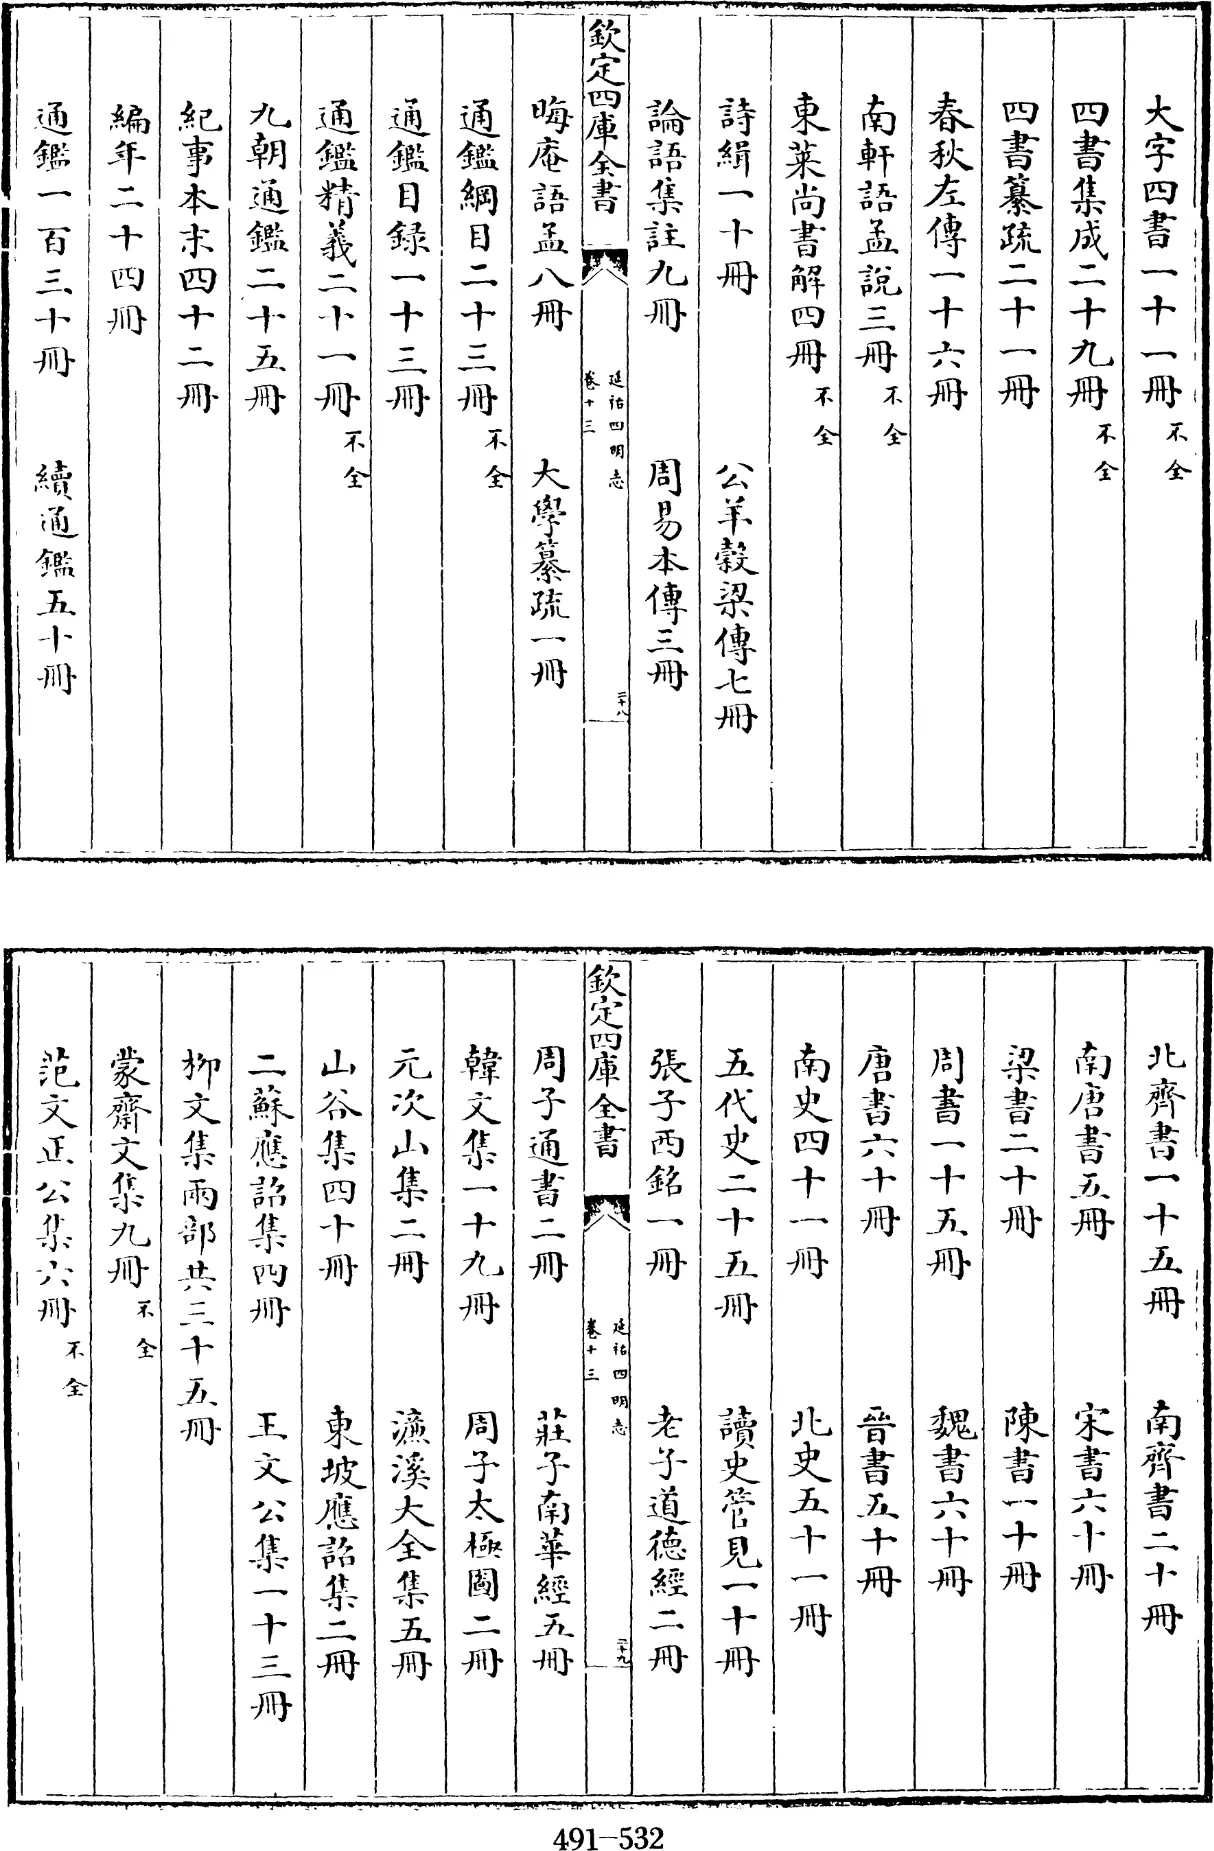 大字四書一十一冊不全
四書集成二十九冊不全
四書纂疏二十一冊
春秋左傳一十六冊
南軒語孟說三冊不全
東萊尚書解四冊不全
詩緝一十冊　公羊榖梁傳七冊
論語集註九冊　周易本傳三冊
欽定四庫全書　延祐四明志　卷十三　二十八
晦庵語孟八冊　大學纂疏一冊
通鑑綱目二十三冊不全
通鑑目録一十三冊
通鑑精義二十一冊不全
九朝通鑑二十五冊
紀事本末四十二冊
編年二十四冊
通鑑一百三十冊　續通鑑五十冊
北齊書一十五冊　南齊書二十冊
南唐書五冊　宋書六十冊
梁書二十冊　陳書一十冊
周書一十五冊　魏書六十冊
唐書六十冊　晉書五十冊
南史四十一冊　北史五十一冊
五代史二十五冊　讀史管見一十冊
張子西銘一冊　老子道德經二冊
欽定四庫全書　延祐四明志　卷十三　二十九
周子通書二冊　莊子南華經五冊
韓文集一十九冊　周子太極圖二冊
元次山集二冊　濂溪大全集五冊
山谷集四十冊　東坡應詔集二冊
二蘇應詔集四冊　王文公集一十三冊
柳文集兩部共三十五冊
蒙齋文集九冊不全
范文正公集六冊不全
491-532